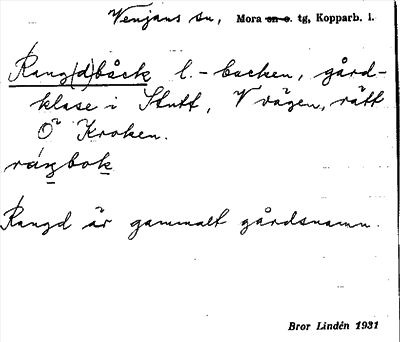 Venjans sn, Mora sn o. tg, Kopparb. l.
Rang(d)båck l. -backen, gård-
klase i Stutt, V vägen, rätt
Ö Kroken.
rangbok
Rangd är gammalt gårdsnamn.
Bror Lindén 1931